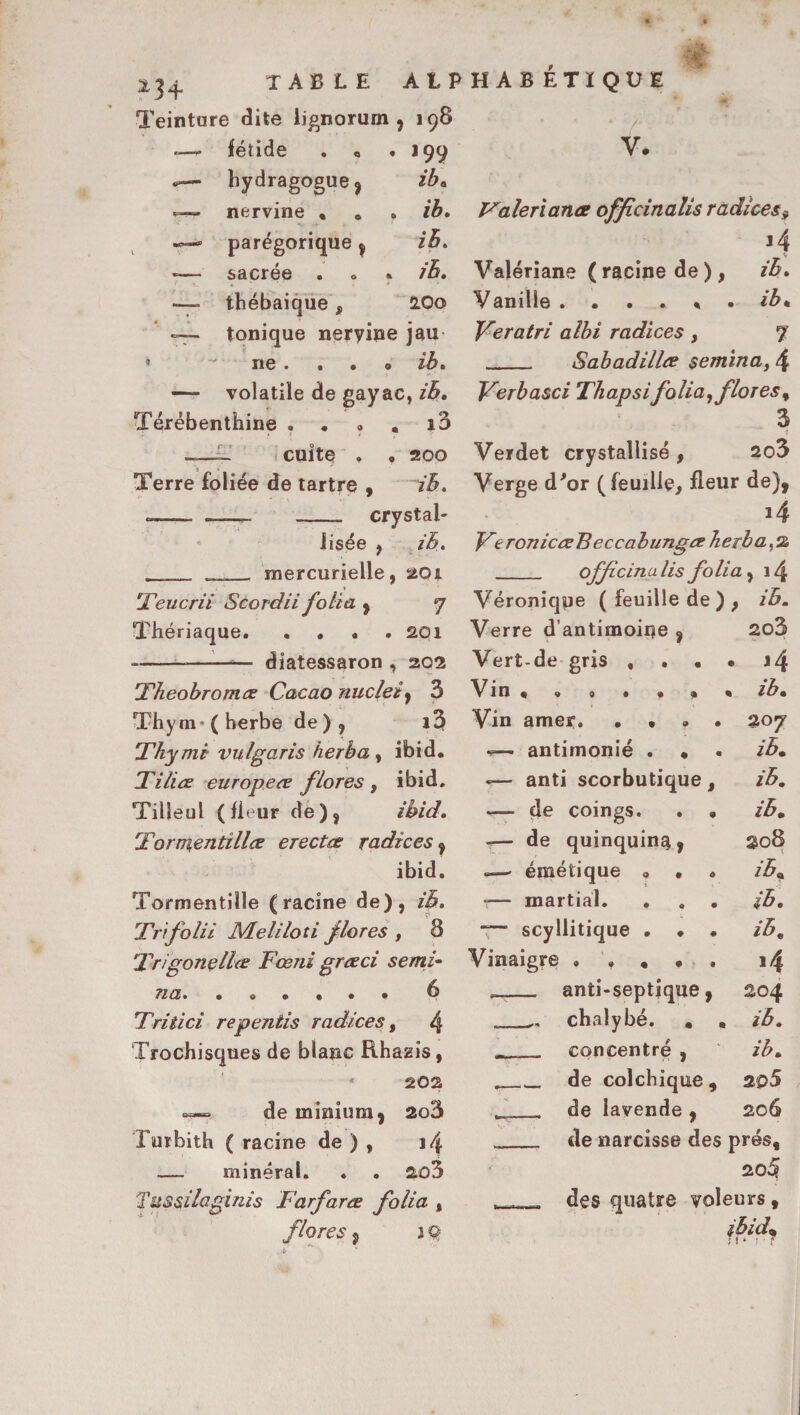 234 TABLE ALPHABÉTIQUE
Teinture dite lignorum, 198
— fétide . . . 199
— hydragogue, ib.
— nervine . . . ib.
— parégorique, ib.
— sacrée . . . ib.
— thébaique, 200
— tonique nervine jau-
ne. . . . . ib.
— volatile de gayac, ib.
Térébenthine . . . . 13
— cuite . . 200
Terre foliée de tartre, ib.
— — — crystal-
lisée, ib.
— — mercurielle, 201
Teucrii Scordii folia, 7
Thériaque. . . . . 201
— diatessaron, 202
Theobromæ Cacao nuclei, 3
Thym (herbe de), 13
Thymi vulgaris herba, ibid.
Tiliæ europeæ flores, ibid.
Tilleul (fleur de), ibid.
Tormentillæ erectæ radices,
ibid.
Tormentille (racine de), ib.
Trifolii Meliloti flores, 8
Trigonellæ Fœni græci semi-
na. . . . . . . 6
Tritici repentis radices, 4
Trochisques de blanc Rhazis,
202
— de minium, 203
Turbith (racine de), 14
— minéral. . . 203
Tussilaginis Farfaræ folia,
flores, 10
V.
Valerianæ officinalis radices,
14
Valériane (racine de), ib.
Vanille . . . . . . ib.
Veratri albi radices, 7
— Sabadillæ semina, 4
Verbasci Thapsi folia, flores,
3
Verdet crystallisé, 203
Verge d'or (feuille, fleur de),
14
Veronicæ Beccabungæ herba, 2
— officinalis folia, 14
Véronique (feuille de), ib.
Verre d'antimoine, 203
Vert-de-gris . . . . 14
Vin . . . . . . . ib.
Vin amer. . . . . 207
— antimonié . . . ib.
— anti scorbutique, ib.
— de coings. . . ib.
— de quinquina, 208
— émétique . . . ib.
— martial. . . . ib.
— scyllitique . . . ib.
Vinaigre . . . . . 14
— anti-septique, 204
— chalybé. . . ib.
— concentré, ib.
— de colchique, 205
— de lavende, 206
— de narcisse des prés,
205
— des quatre voleurs,
ibid.